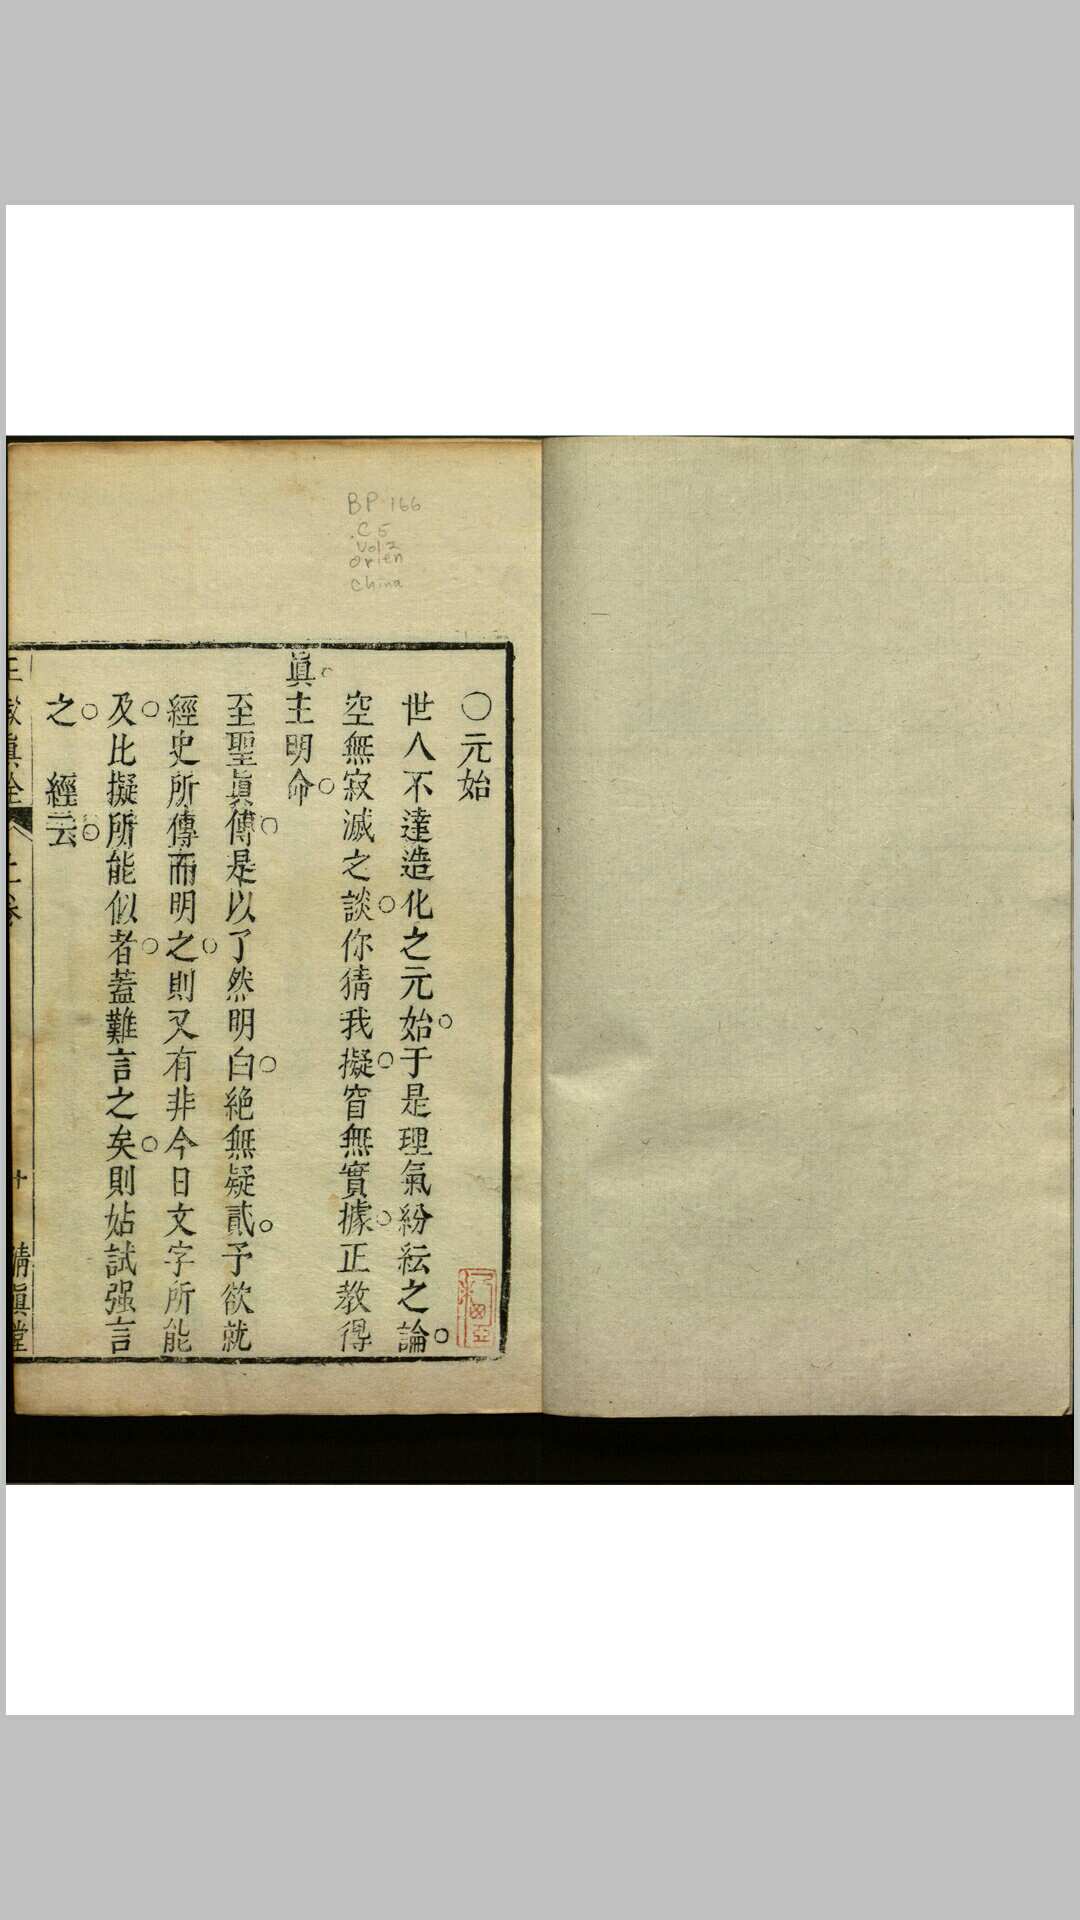 BP 166
.C5
Vol 2
Orien
China
〇元始
世人不達造化之元始。于是理氣紛紜之論。
空無寂滅之談。你猜我擬。窅無實據。正教得
眞主明命。
至聖眞傳。是以了然明白。絶無疑貳。予欲就
經史所傳而明之。則又有非今日文字所能
及。比擬所能似者。蓋難言之矣。則姑試强言
之。 經云。
正教眞詮 上卷 十 清眞堂